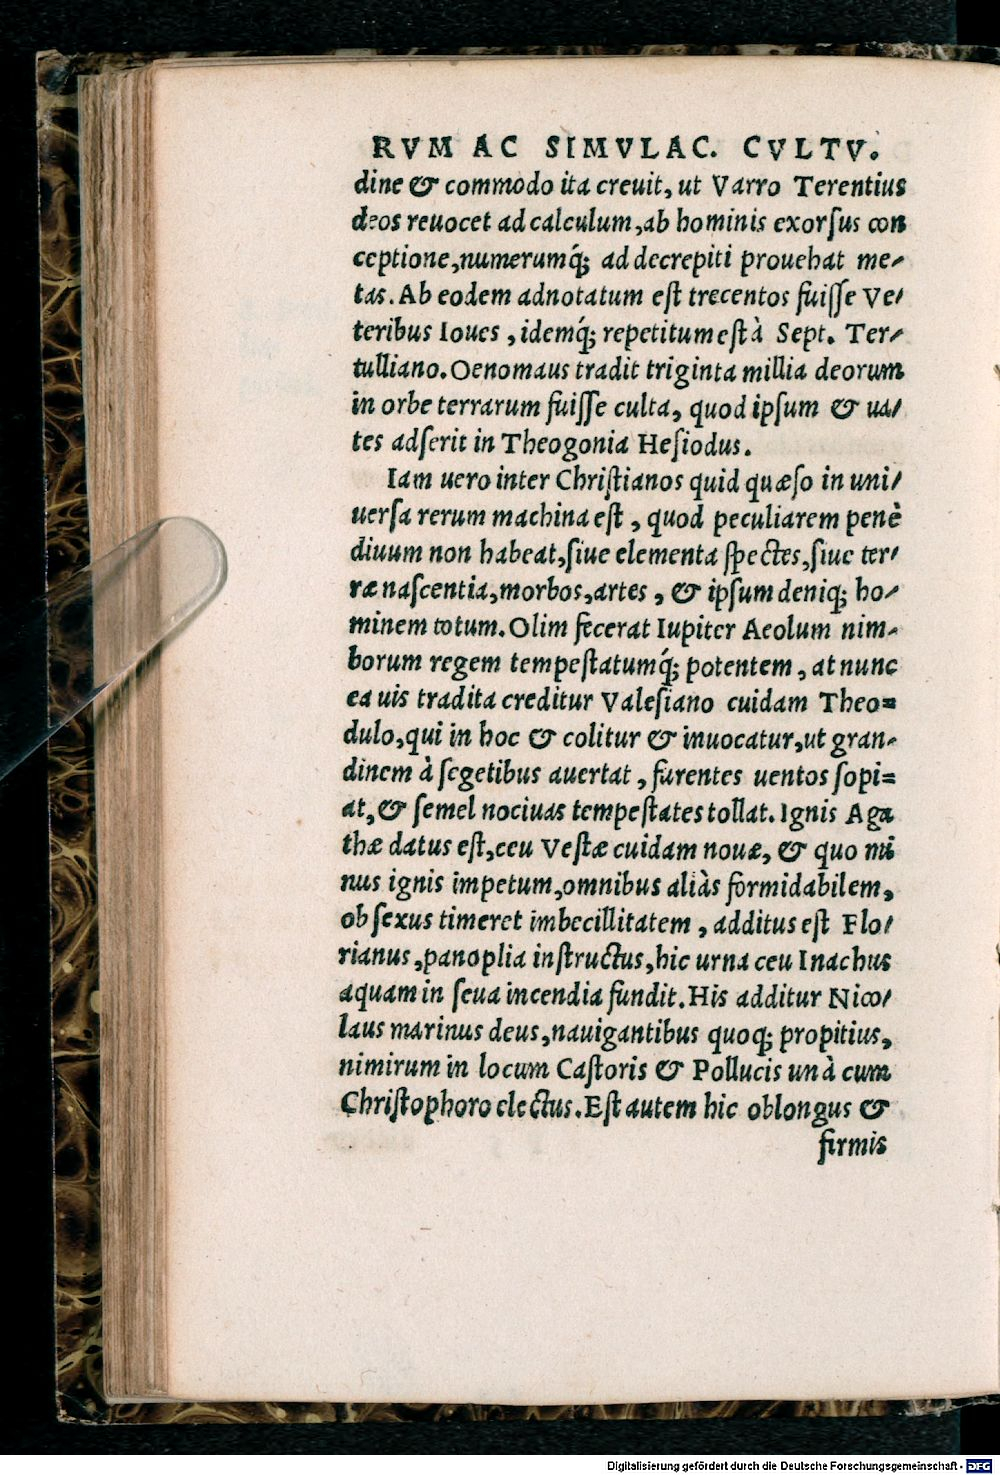 RVM AC SIMVLAC. CVLTV.
dine & commodo ita creuit, ut Varro Terentius
deos reuocet ad calculum, ab hominis exorsus con
ceptione, numerumq́; ad decrepiti prouehat me-
tas. Ab eodem adnotatum est trecentos fuisse Ve-
teribus Ioues, idemq́; repetitum est à Sept. Ter-
tulliano. Oenomaus tradit triginta millia deorum
in orbe terrarum fuisse culta, quod ipsum & ua-
tes adserit in Theogonia Hesiodus.
Iam uero inter Christianos quid quæso in uni-
uersa rerum machina est, quod peculiarem penè
diuum non habeat, siue elementa spectes, siue ter-
ræ nascentia, morbos, artes, & ipsum deniq; ho-
minem totum. Olim fecerat Iupiter Aeolum nim-
borum regem tempestatumq́; potentem, at nunc
ea uis tradita creditur Valesiano cuidam Theo-
dulo, qui in hoc & colitur & inuocatur, ut gran-
dinem à segetibus auertat, furentes uentos sopi-
at, & semel nociuas tempestates tollat. Ignis Aga
thæ datus est, ceu Vestæ cuidam nouæ, & quo mi
nus ignis impetum, omnibus aliàs formidabilem,
ob sexus timeret imbecillitatem, additus est Flo-
rianus, panoplia instructus, hic urna ceu Inachus
aquam in seua incendia fundit. His additur Nico-
laus marinus deus, nauigantibus quoq; propitius,
nimirum in locum Castoris & Pollucis unà cum
Christophoro electus. Est autem hic oblongus &
firmis
Digitalisierung gefördert durch die Deutsche Forschungsgemeinschaft - DFG